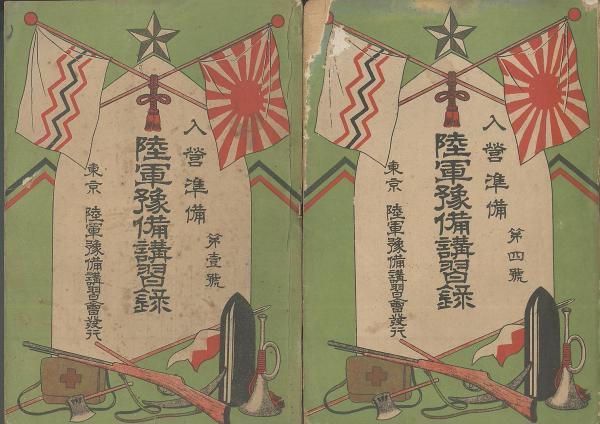 入營準備 第壹號
陸軍豫備講習錄
東京 陸軍豫備講習會發行
入營準備 第四號
陸軍豫備講習錄
東京 陸軍豫備講習會發行